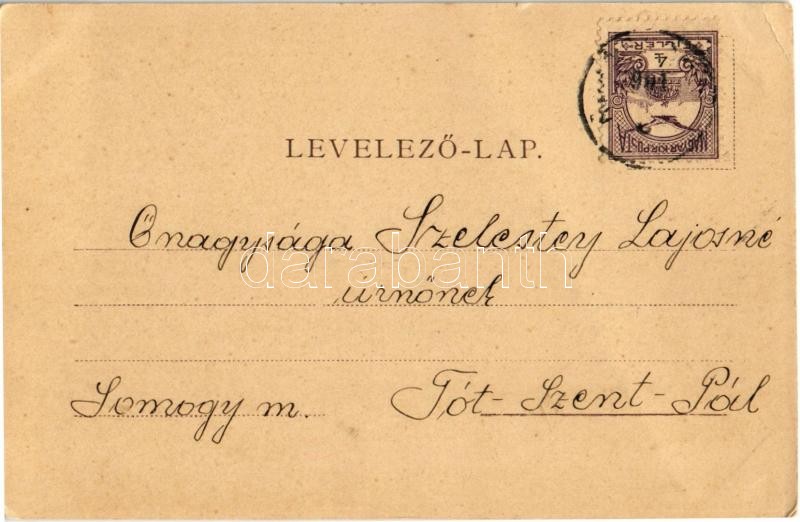 MAGYAR KIR. POSTA
4
LEVELEZŐ-LAP.
Önagysága Szelestey Lajosné
úrnőnek
Somogy m. Tót-Szent-Pál
darabanth